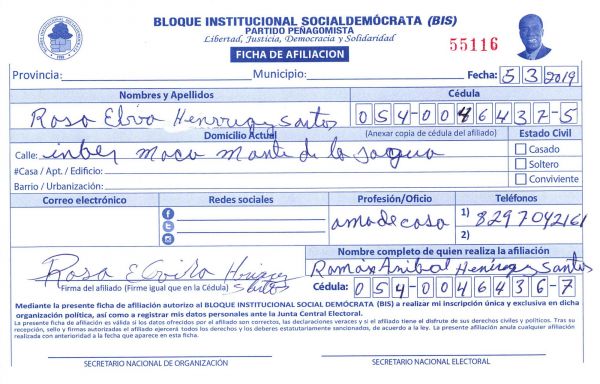 BLOQUE INSTITUCIONAL SOCIALDEMÓCRATA (BIS)
PARTIDO PEÑAGOMISTA
Libertad, Justicia, Democracia y Solidaridad
FICHA DE AFILIACION
55116
Provincia: Municipio: Fecha: 5 3 2019
Nombres y Apellidos Cédula
Rosa Elvira Henriquez Santos 054-0046437-5
Domicilio Actual (Anexar copia de cédula del afiliado) Estado Civil
Calle: Moca
#Casa / Apt. / Edificio:
Barrio / Urbanización:
Casado
Soltero
Conviviente
Correo electrónico Redes sociales Profesión/Oficio Teléfonos
ama de casa 1) 8297042161
2)
Nombre completo de quien realiza la afiliación
Rosa Elvira Henriquez Santos Ramon Anibal Henriquez Santos
Firma del afiliado (Firme igual que en la Cédula) Cédula: 054-0046436-7
Mediante la presente ficha de afiliación autorizo al BLOQUE INSTITUCIONAL SOCIAL DEMÓCRATA (BIS) a realizar mi inscripción única y exclusiva en dicha
organización política, así como a registrar mis datos personales ante la Junta Central Electoral.
La presente ficha de afiliación es válida si los datos ofrecidos por el afiliado son correctos, las declaraciones veraces y si el afiliado tiene el disfrute de sus derechos civiles y políticos. Tras su
recepción, sello y firmas autorizadas el afiliado ejercerá todos los derechos y los deberes estatutariamente sancionados, de acuerdo a la ley. La presente afiliación anula cualquier afiliación
realizada con anterioridad a la fecha que aparece en esta ficha.
SECRETARIO NACIONAL DE ORGANIZACIÓN SECRETARIO NACIONAL ELECTORAL